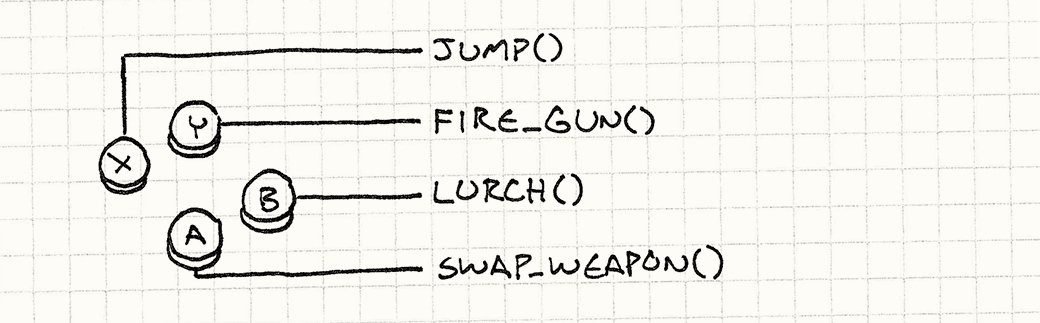 JUMP()
Y FIRE_GUN()
X
B LURCH()
A SWAP_WEAPON()